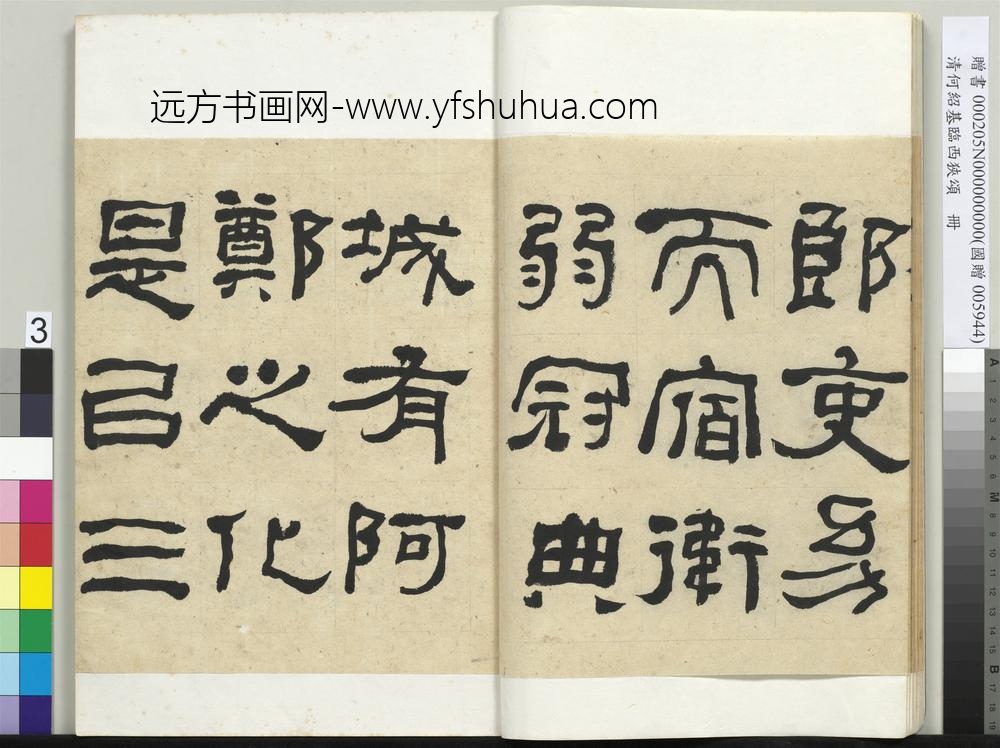 远方书画网-www.yfshuhua.com
贈書 000205N000000000(國贈 005944)
清何紹基臨西狹頌 冊
郎吏幼
而宿衛
弱冠典
城有阿
鄭之化
是㠯三
3
A 1 2 3 4 5 6 M 8 9 10 11 12 13 14 15 B 17 18 19